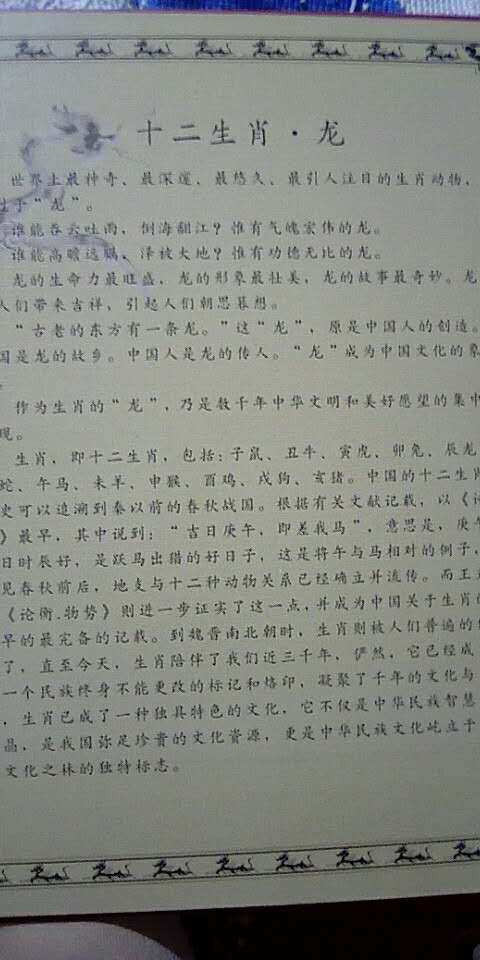 十二生肖·龙
世界上最神奇、最深邃、最悠久、最引人注目的生肖动物，
于“龙”。
谁能吞云吐雨，倒海翻江？惟有气魄宏伟的龙。
谁能高瞻远瞩，泽被大地？惟有功德无比的龙。
龙的生命力最旺盛，龙的形象最壮美，龙的故事最奇妙。龙
人们带来吉祥，引起人们朝思暮想。
“古老的东方有一条龙。”这“龙”，原是中国人的创造。
国是龙的故乡。中国人是龙的传人。“龙”成为中国文化的象
。
作为生肖的“龙”，乃是数千年中华文明和美好愿望的集中
现。
生肖，即十二生肖，包括：子鼠、丑牛、寅虎、卯兔、辰龙
蛇、午马、未羊、申猴、酉鸡、戌狗、亥猪。中国的十二生肖
史可以追溯到秦以前的春秋战国。根据有关文献记载，以《
》最早，其中说到：“吉日庚午，即差我马”，意思是，庚午
日时辰好，是跃马出猎的好日子，这是将午与马相对的例子，
见春秋前后，地支与十二种动物关系已经确立并流传。而王
《论衡.物势》则进一步证实了这一点，并成为中国关于生肖
早的最完备的记载。到魏晋南北朝时，生肖则被人们普遍的
了，直至今天，生肖陪伴了我们近三千年，俨然，它已经成
一个民族终身不能更改的标记和烙印，凝聚了千年的文化与
，生肖已成了一种独具特色的文化，它不仅是中华民族智慧
晶，是我国弥足珍贵的文化资源，更是中华民族文化屹立于
文化之林的独特标志。